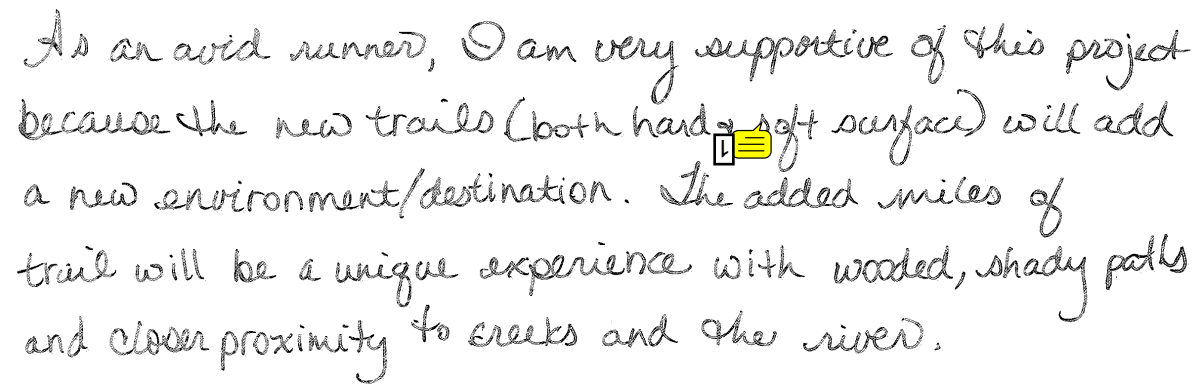 As an avid runner, I am very supportive of this project
because the new trails (both hard & soft surface) will add
1
a new environment/destination. The added miles of
trail will be a unique experience with wooded, shady paths
and closer proximity to creeks and the river.